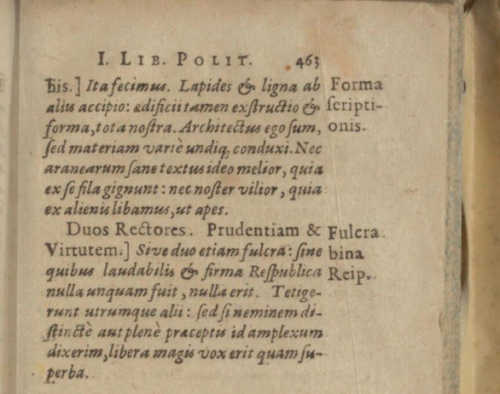 I. LIB. POLIT. 463
his.] Ita fecimus. Lapides & ligna ab
aliis accipio: ædificii tamen exſtructio &
forma, tota noſtra. Architectus ego ſum,
ſed materiam variè undiq; conduxi. Nec
aranearum ſane textus ideo melior, quia
ex ſe fila gignunt: nec noſter vilior, quia
ex alienis libamus, ut apes.
DUOS RECTORES. Prudentiam &
Virtutem.] Sive duo etiam fulcra: ſine
quibus laudabilis & firma Reſpublica
nulla unquam fuit, nulla erit. Tetige-
runt utrumque alii: ſed ſi neminem di-
ſtinctè aut plenè præceptis id amplexum
dixerim, libera magis vox erit quam ſu-
perba.
Forma
ſcripti-
onis.
Fulcra
bina
Reip.